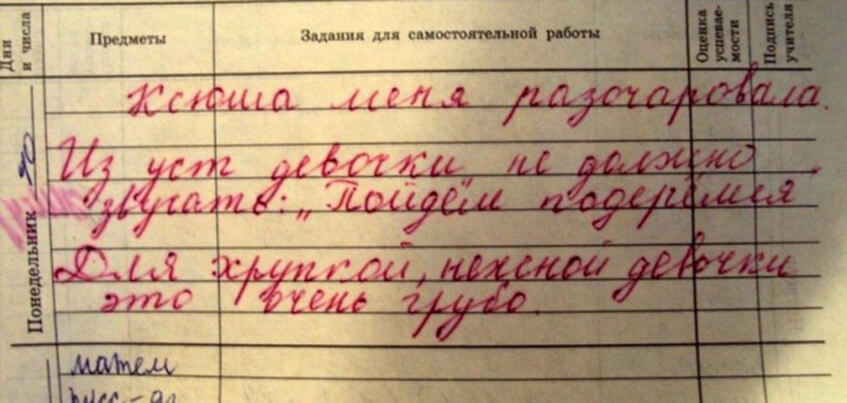 Дни и числа
Предметы
Задания для самостоятельной работы
Оценка успевае-
мости
Подпись учителя
Понедельник
Ксюша меня разочаровала.
Из уст девочки не должно
звучать: „Пойдём подерёмся.
Для хрупкой, нежной девочки
это очень грубо.
матем